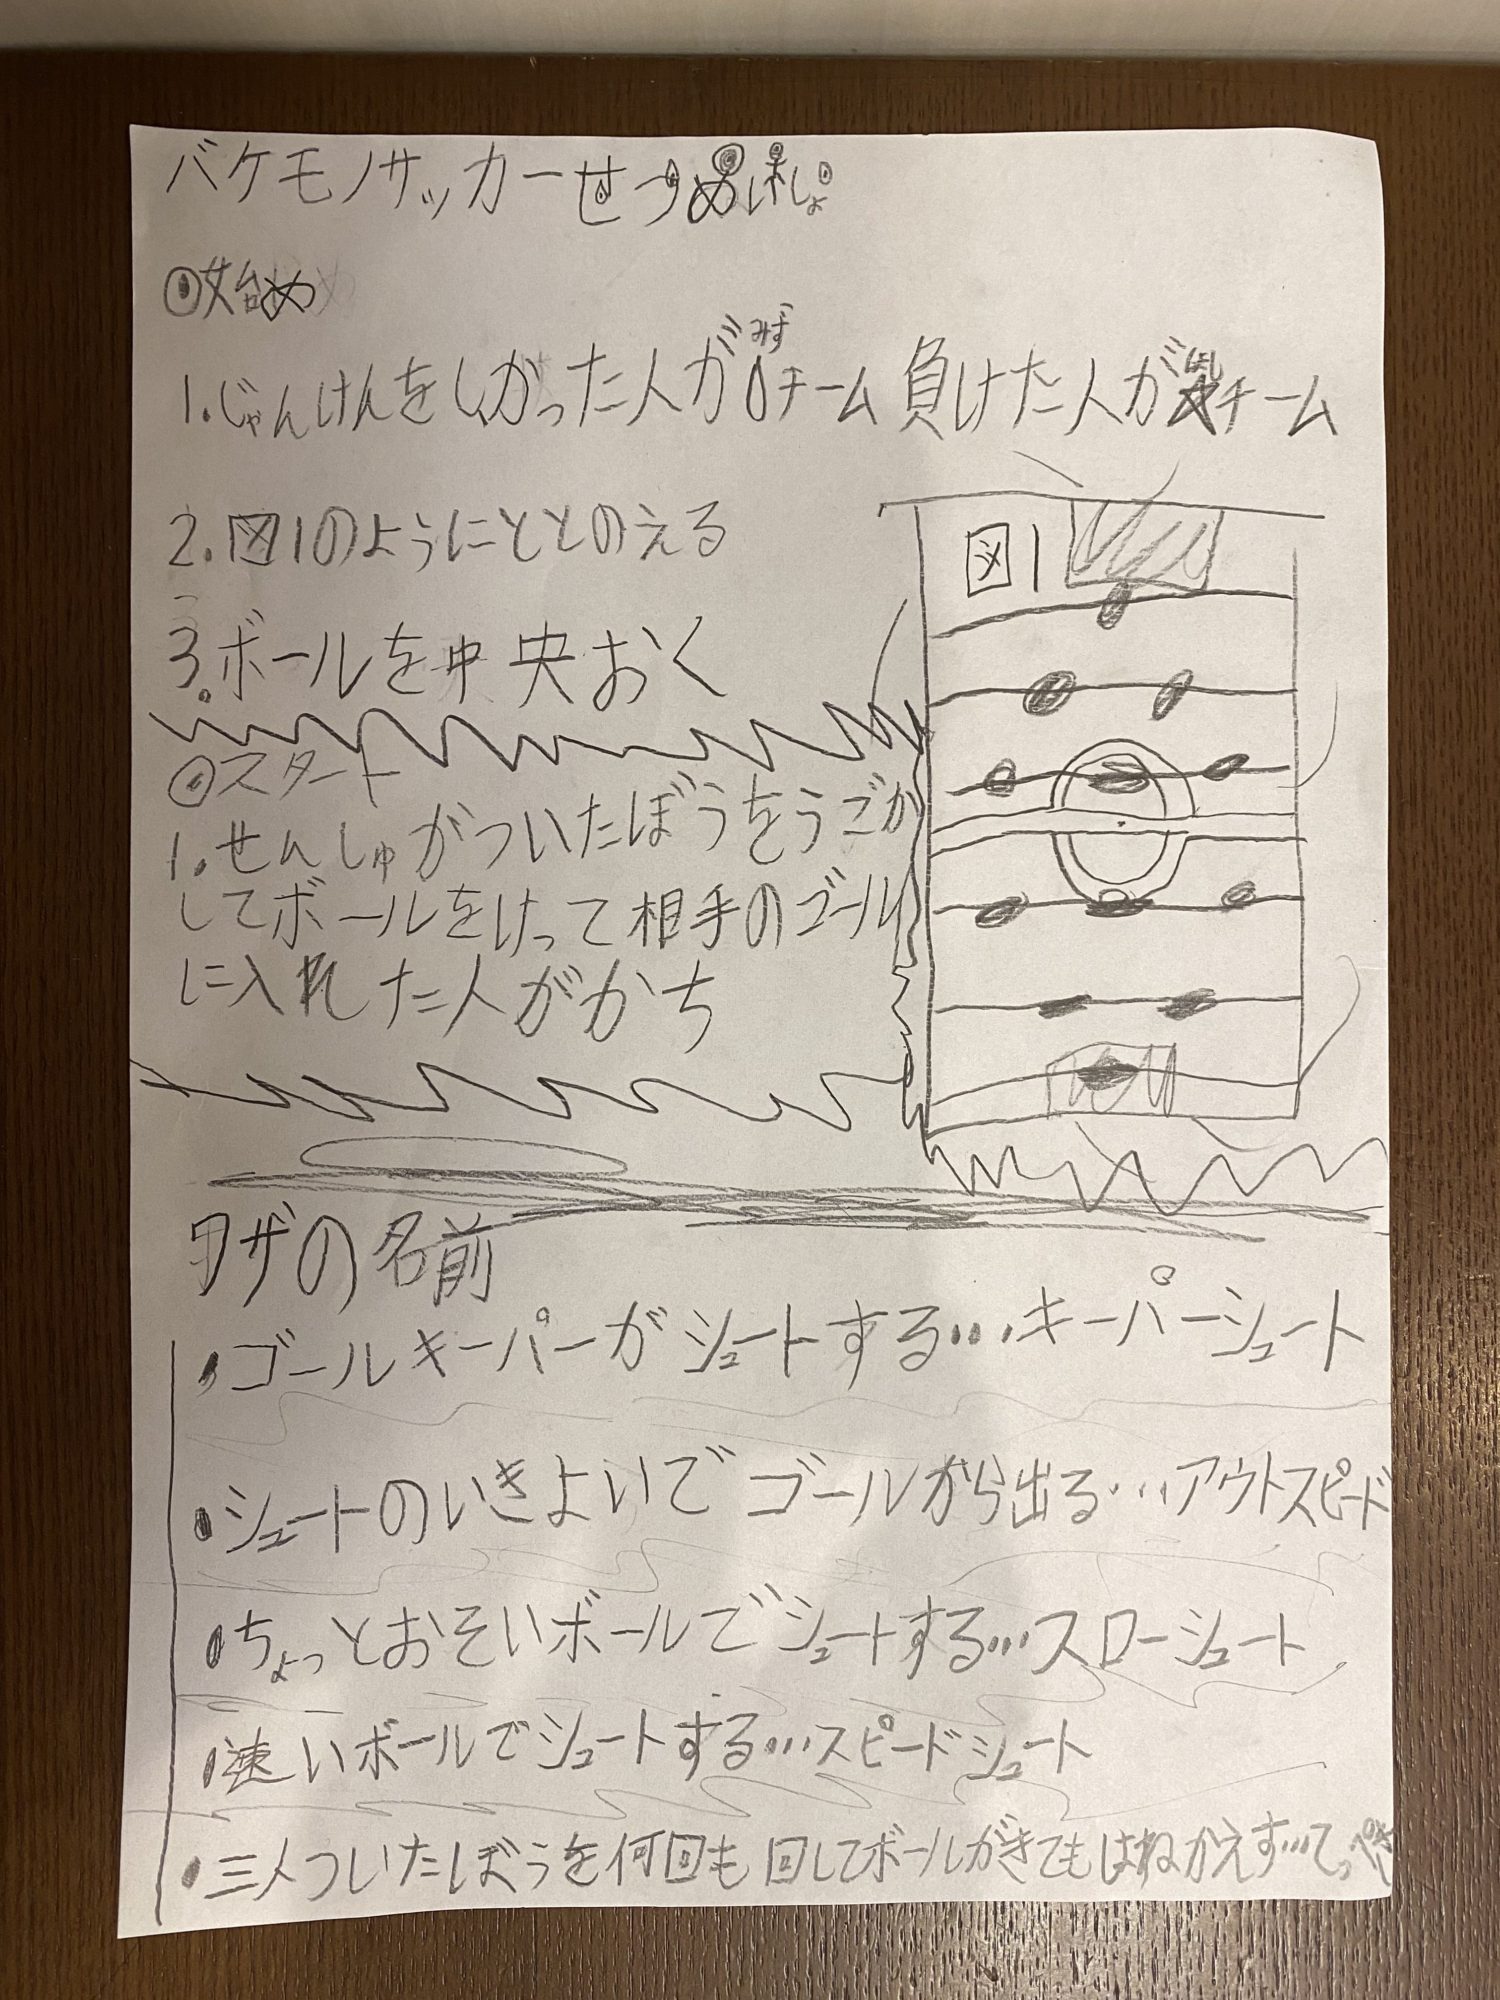 バケモノサッカーせつめいしょ
◎始め
1.じゃんけんをしかった人がみずチーム 負けた人がチーム
2.図1のようにととのえる
図1
3.ボールを中央おく
◎スタート
1.せんしゅがついたぼうをうごか
してボールをけって相手のゴール
に入れた人がかち
ワザの名前
・ゴールキーパーがシュートする…キーパーシュート
・シュートのいきよいでゴールから出る…アウトスピード
・ちょっとおそいボールでシュートする…スローシュート
・速いボールでシュートする…スピードシュート
・三人ついたぼうを何回も回してボールがきてもはねかえす…てっぺき